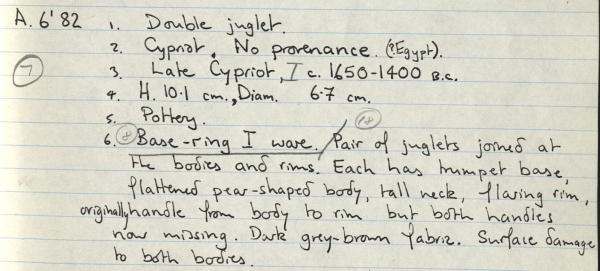 A. 6'82 1. Double juglet.
2. Cypriot. No provenance. (?Egypt).
7 3. Late Cypriot, I c. 1650-1400 B.C.
4. H. 10.1 cm., Diam. 6.7 cm.
5. Pottery.
6. 8 Base-ring I ware. / 18 Pair of juglets joined at
the bodies and rims. Each has trumpet base,
flattened pear-shaped body, tall neck, flaring rim,
originally handle from body to rim but both handles
now missing. Dark grey-brown fabric. Surface damage
to both bodies.